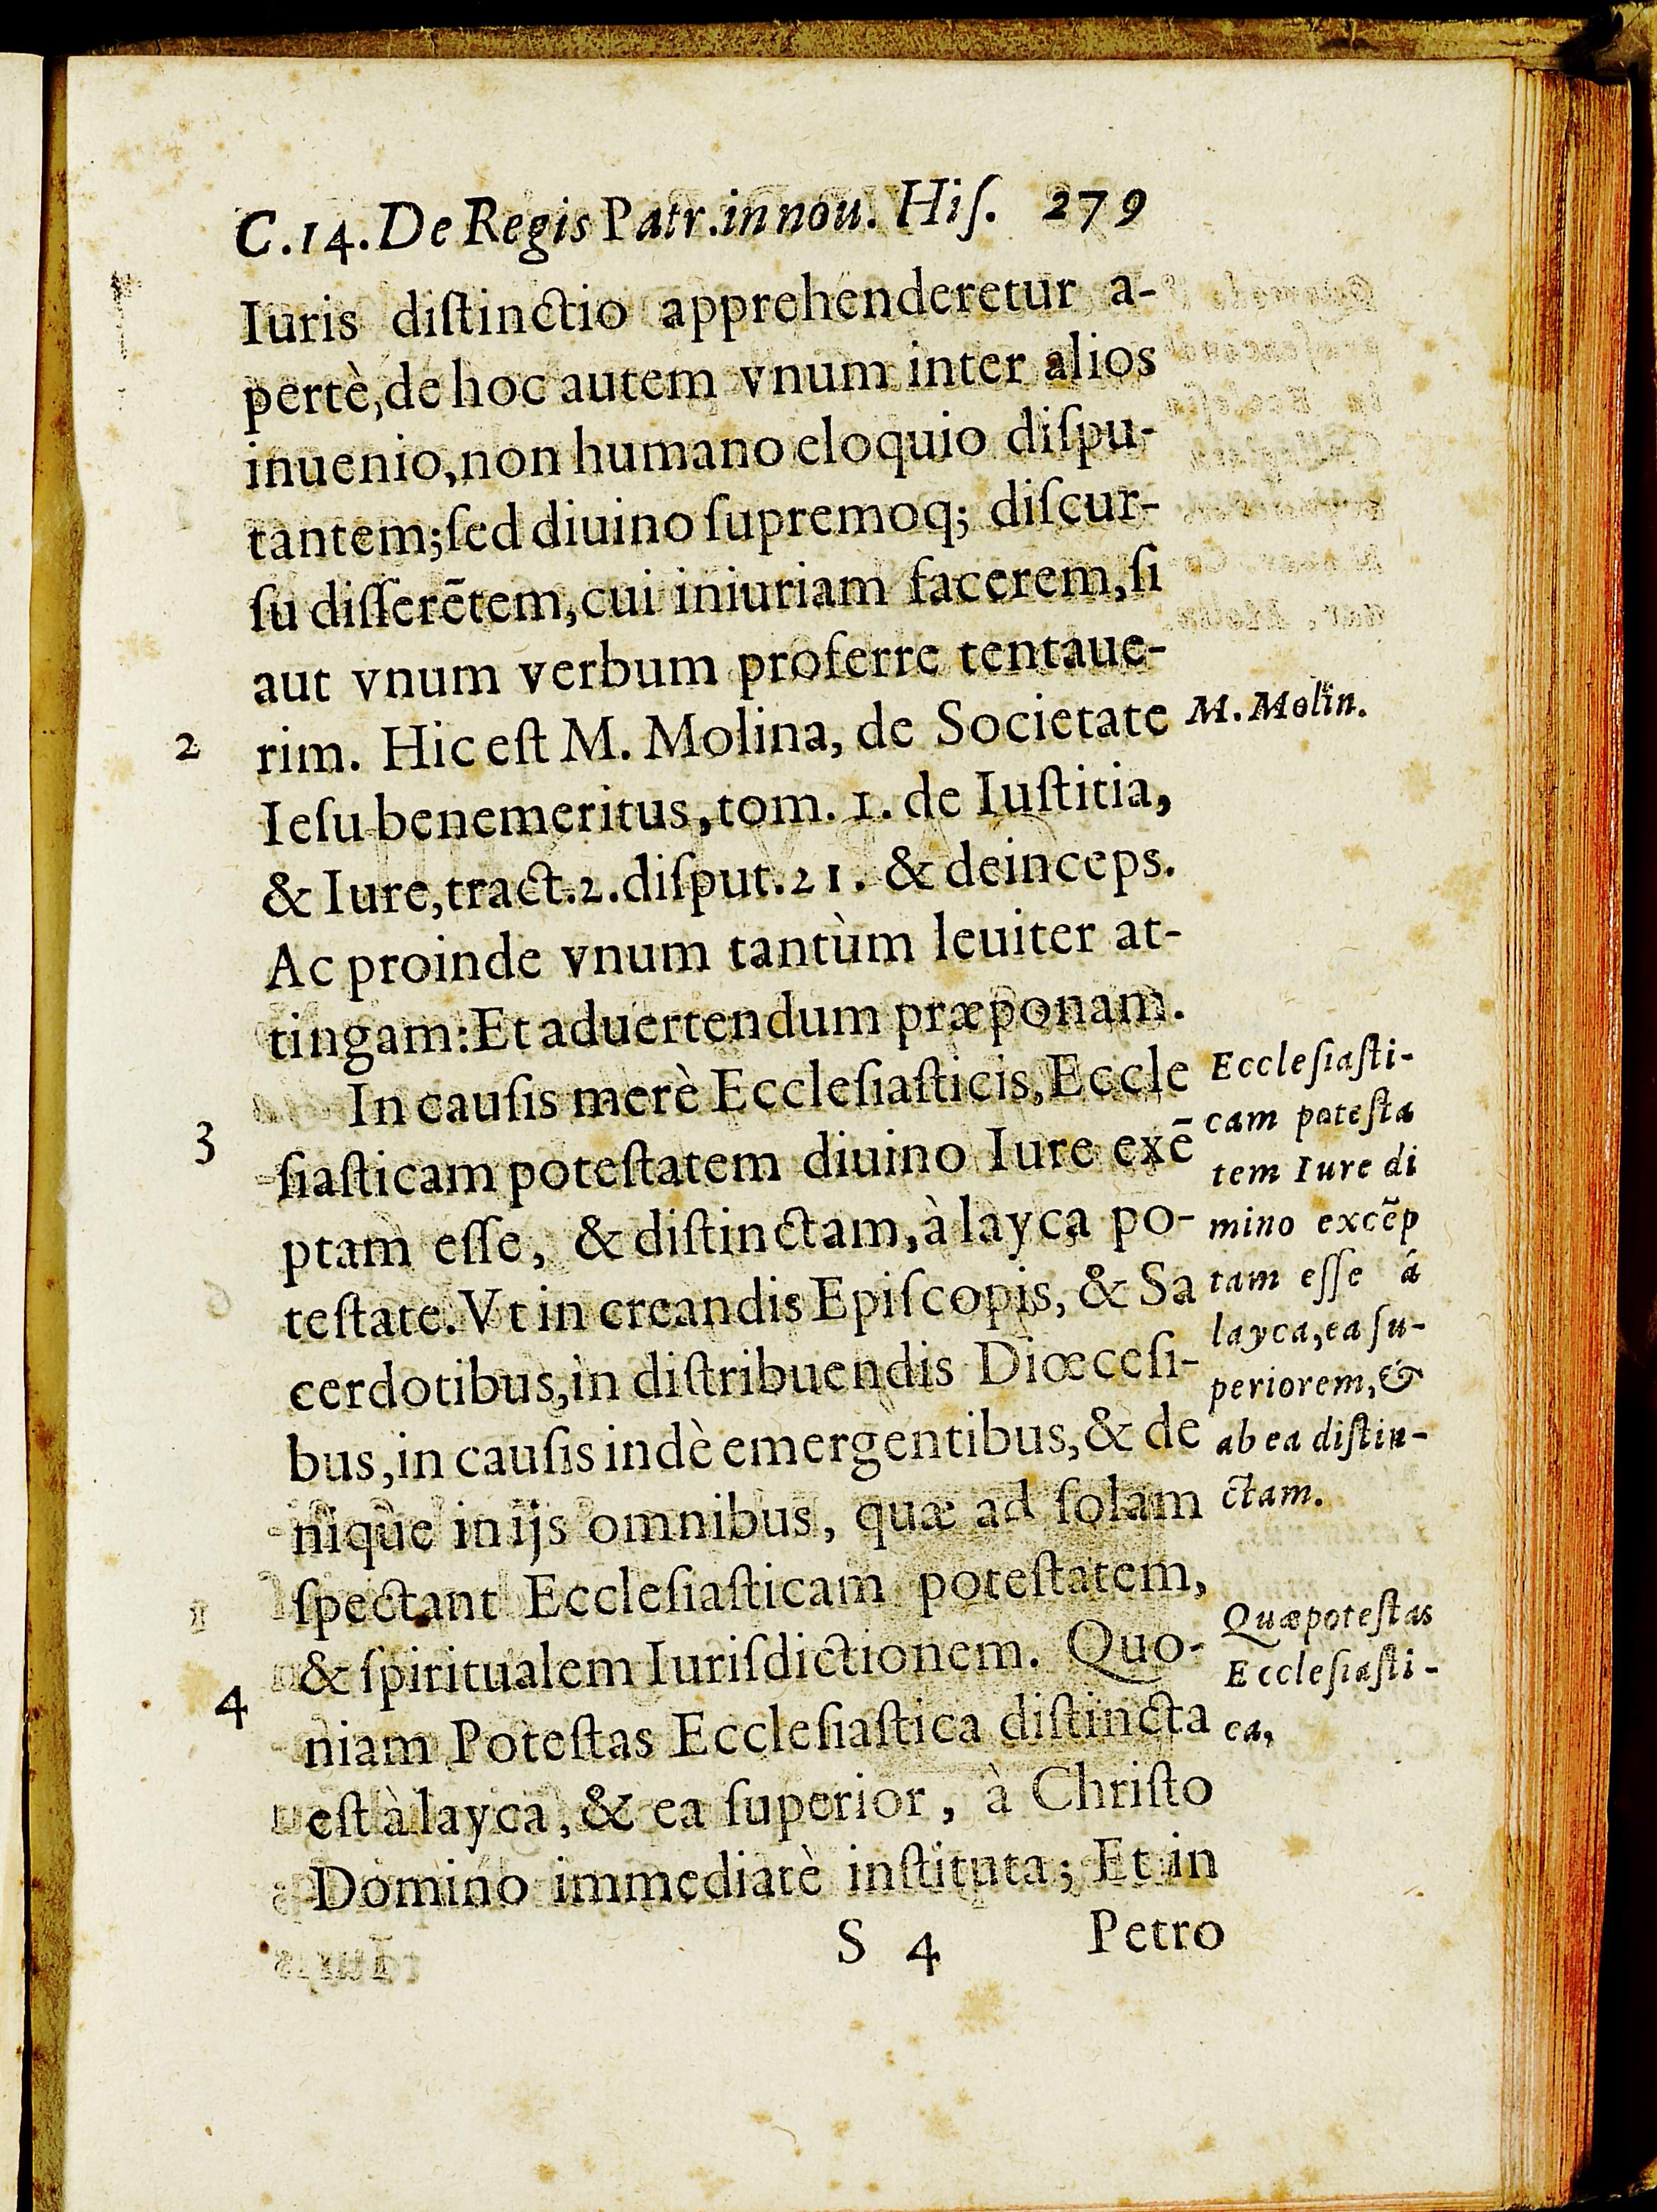 C.14.De Regis Patr.in nou. Hiſ. 279
Iuris diſtinctio apprehenderetur a-
pertè,de hoc autem vnum inter alios
inuenio,non humano eloquio diſpu-
tantem;ſed diuino ſupremoq; diſcur-
ſu diſſerētem,cui iniuriam facerem,ſi
aut vnum verbum proferre tentaue-
2 rim. Hic eſt M. Molina, de Societate
M. Molin.
Ieſu benemeritus,tom. 1. de Iuſtitia,
& Iure,tract.2.diſput.21. & deinceps.
Ac proinde vnum tantùm leuiter at-
tingam:Et aduertendum præponam.
In cauſis merè Eccleſiaſticis,Eccle
3 ſiaſticam poteſtatem diuino Iure exē
ptam eſſe, & diſtinctam,à layca po-
teſtate. Vt in creandis Epiſcopis, & Sa
cerdotibus,in diſtribuendis Diœceſi-
bus,in cauſis indè emergentibus,& de
nique in ijs omnibus, quæ ad ſolam
ſpectant Eccleſiaſticam poteſtatem,
& ſpiritualem Iuriſdictionem. Quo-
4 niam Poteſtas Eccleſiaſtica diſtincta
eſt à layca, & ea ſuperior, à Chriſto
Domino immediatè inſtituta; Et in
Eccleſiaſti-
cam poteſta
tem Iure di
mino excēp
tam eſſe á
layca,ea ſu-
periorem,&
ab ea diſtin-
ctam.
Quæ poteſtas
Eccleſiaſti-
ca,
S 4 Petro